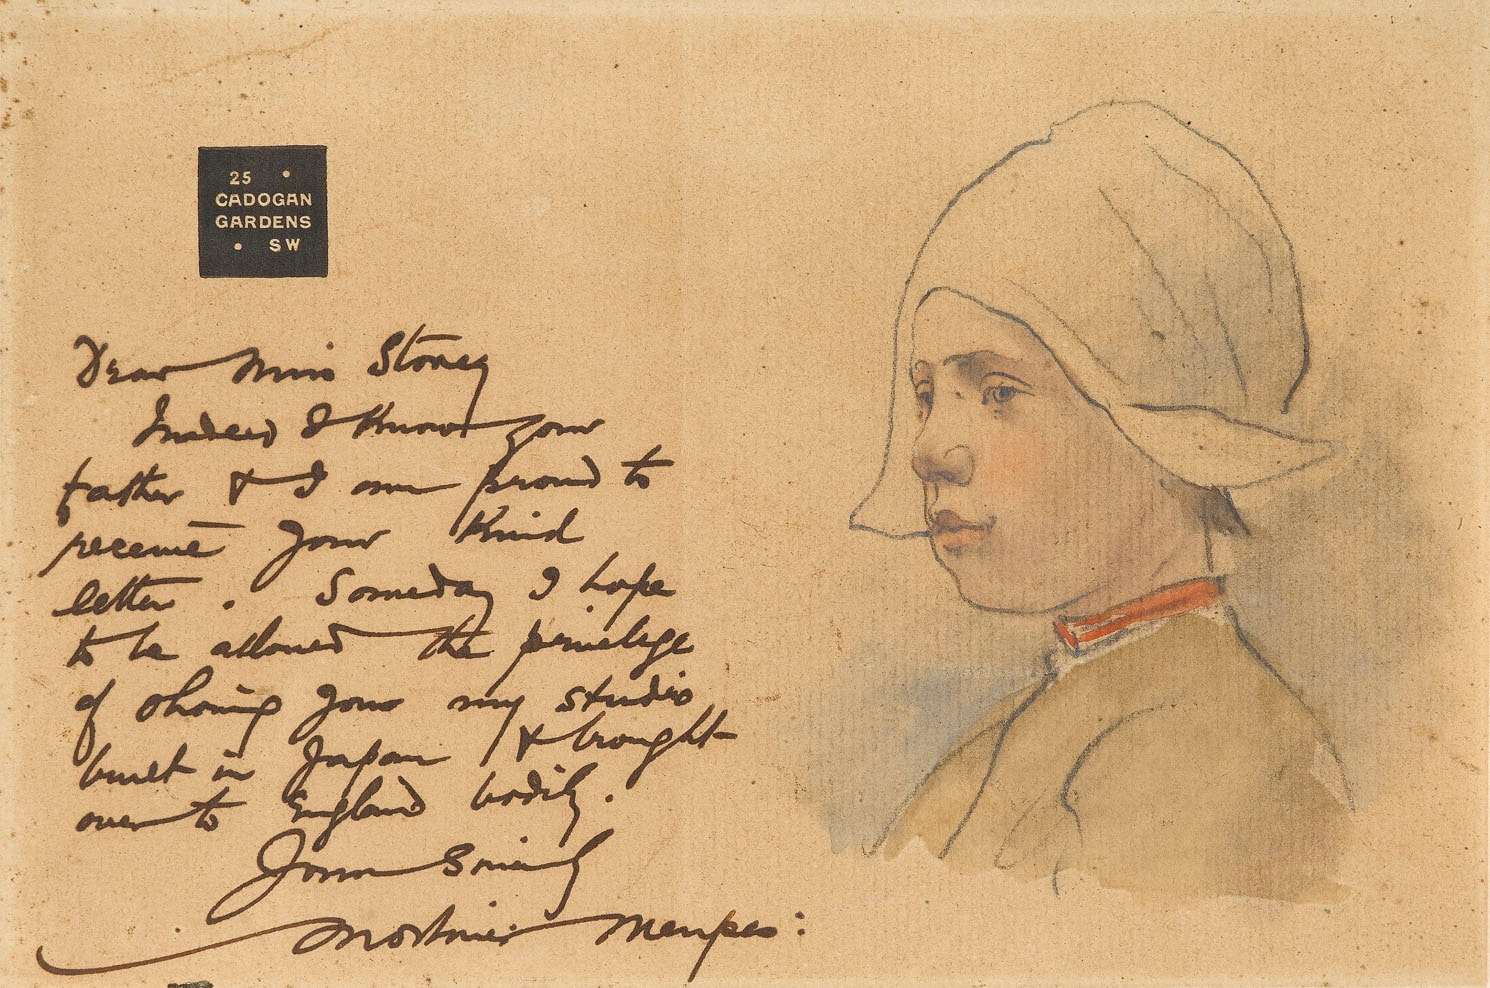 25 •
CADOGAN
GARDENS
• SW
Dear Miss Stoney
Indeed I know your
father & I am proud to
receive your kind
letter. Someday I hope
to be allowed the privilege
of showing you my studio
built in Japan & brought
over to England bodily.
Yours Sincerely
Mortimer Menpes: